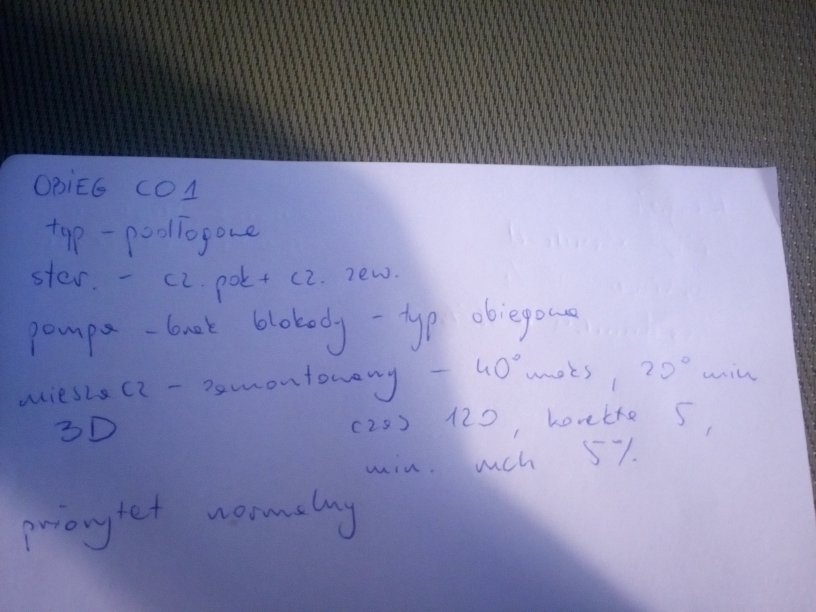 OBIEG CO1
typ - podłogowe
ster. - cz. pok + cz. zew.
pompa - brak blokady - typ obiegowa
mieszacz - zamontowany - 40° maks, 20° min
3D czas 120, korekta 5,
min. ruch 5%
priorytet normalny